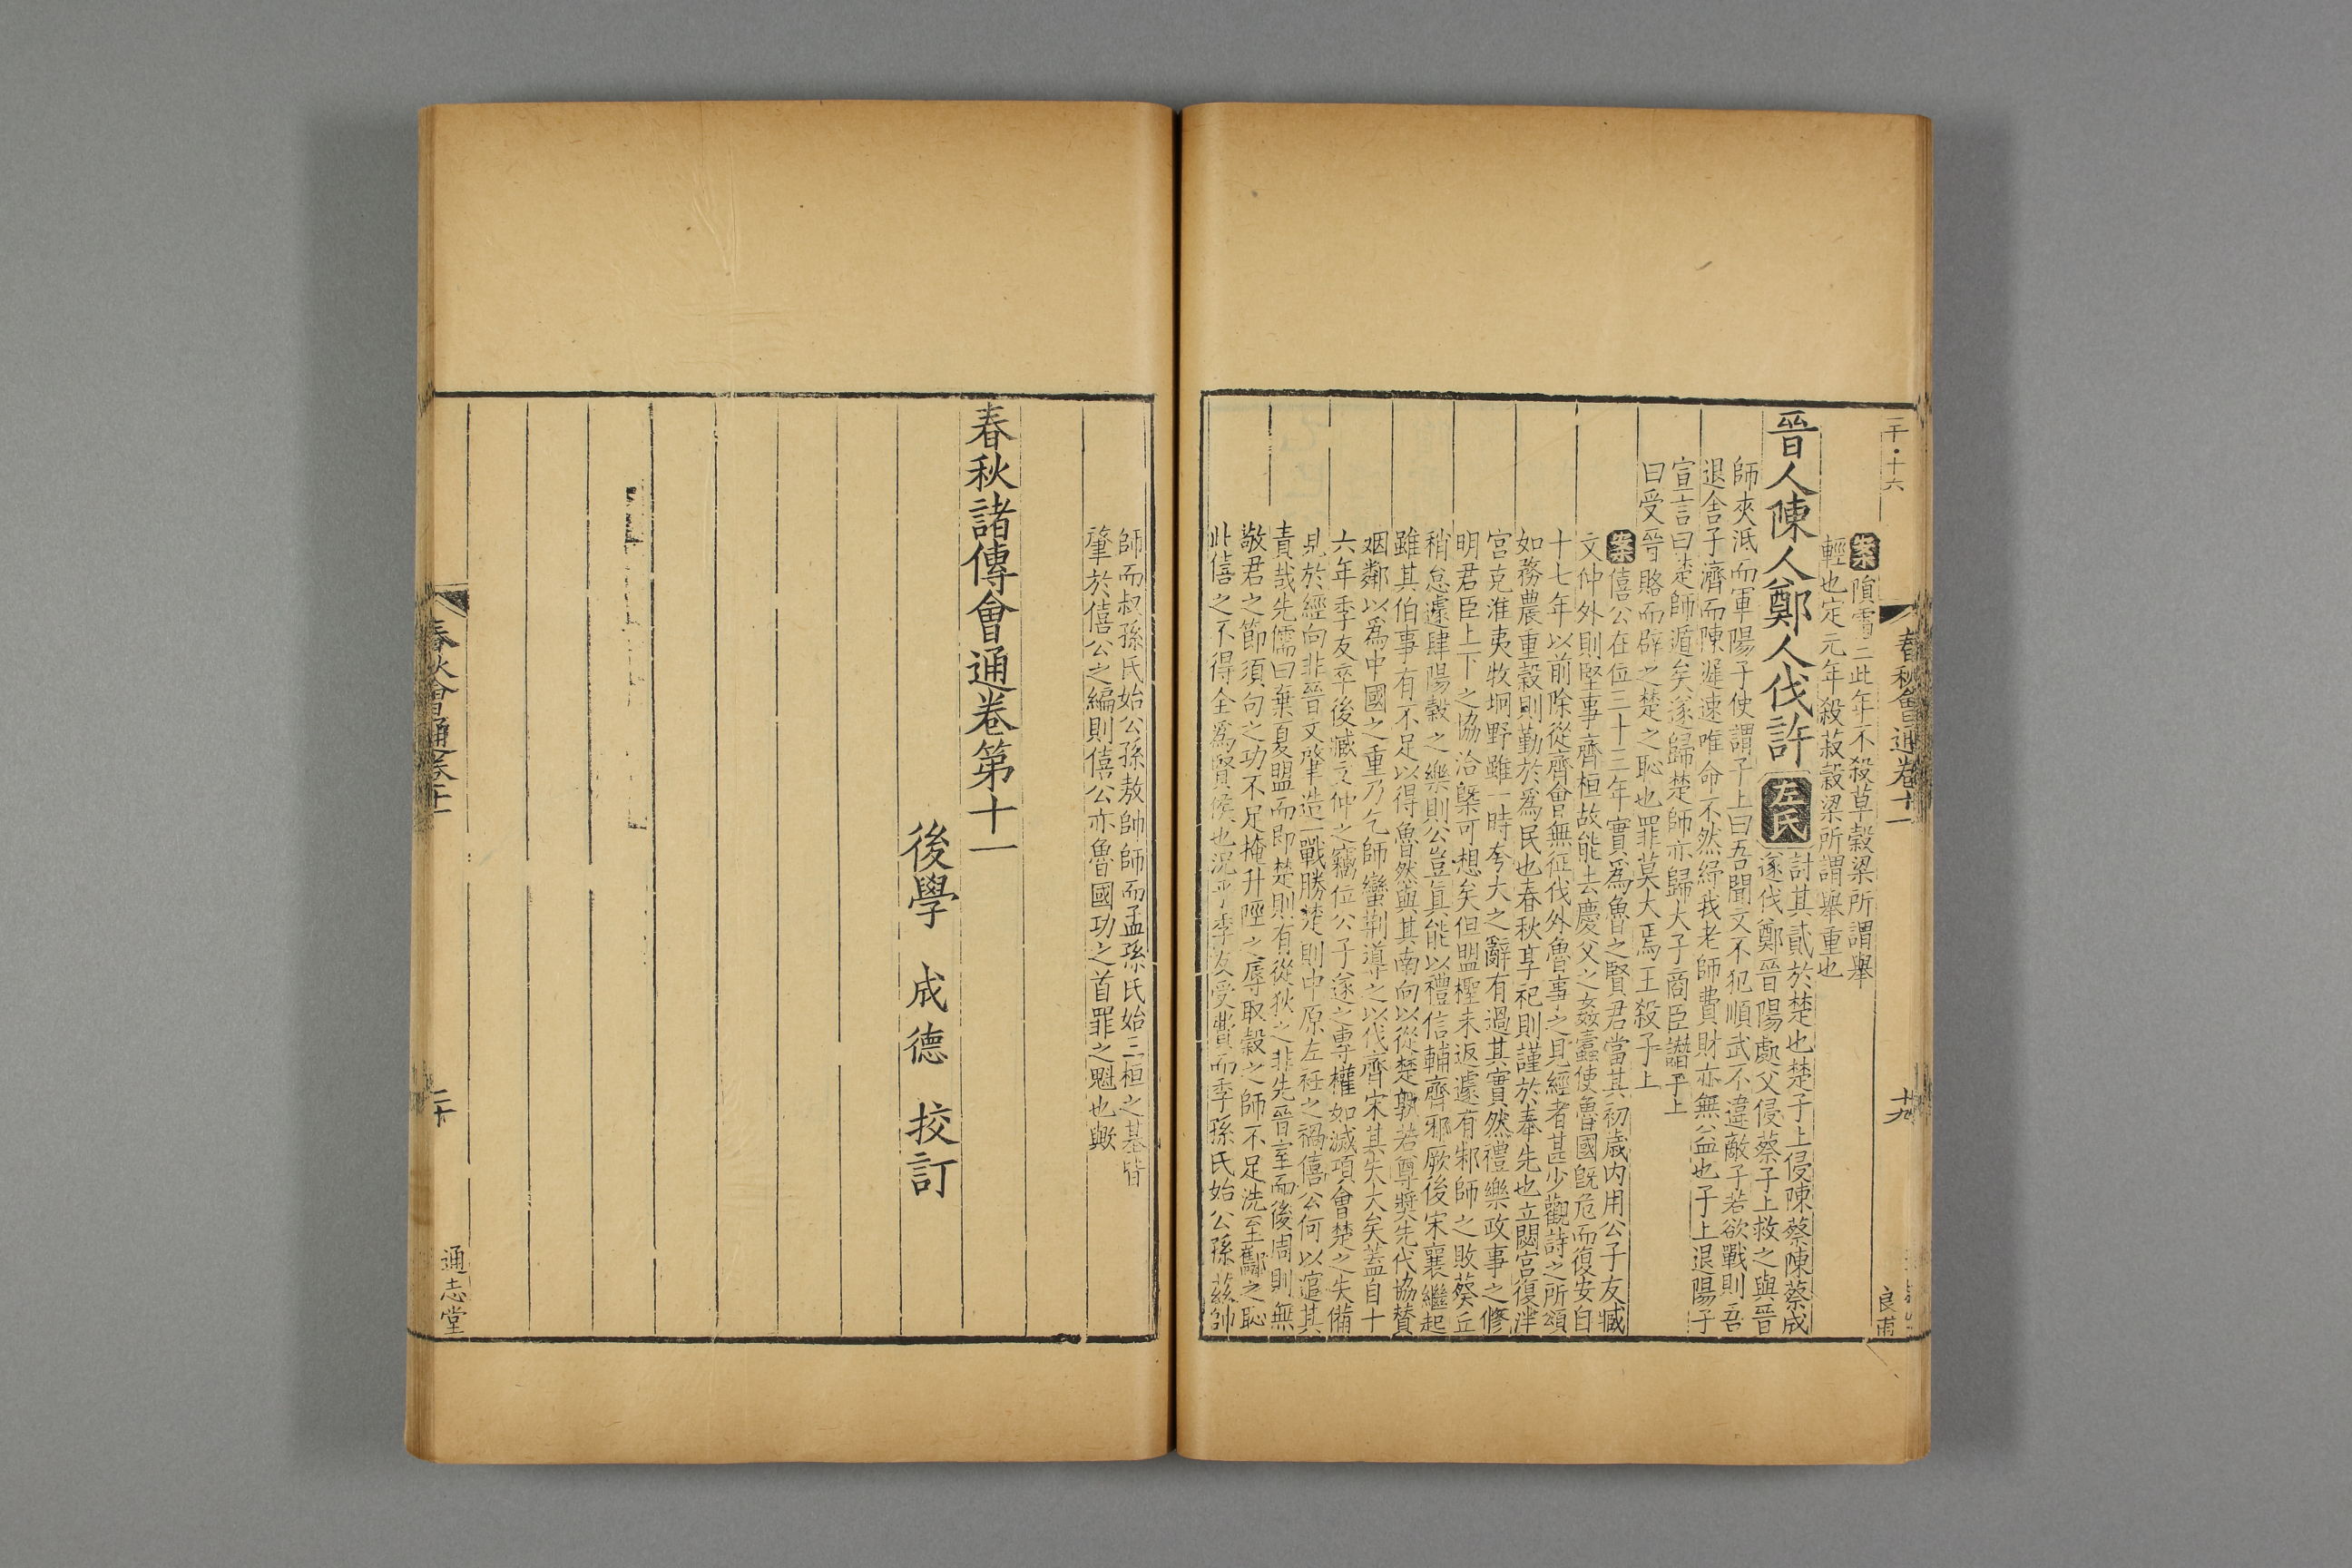 二千·十六
春秋會通卷十一
十九
良甫
案隕霜二此年不殺草穀梁所謂舉
輕也定元年殺菽穀梁所謂舉重也
晉人陳人鄭人伐許
左氏討其貳於楚也楚子上侵陳蔡陳蔡成
遂伐鄭晉陽處父侵蔡子上救之與晉
師夾泜而軍陽子使謂子上曰吾聞文不犯順武不違敵子若欲戰則吾
退舍子濟而陳遲速唯命不然紓我老師費財亦無益也子上退陽子
宣言曰楚師遁矣遂歸楚師亦歸大子商臣譖子上
曰受晉賂而辟之楚之恥也罪莫大焉王殺子上
案僖公在位三十三年實爲魯之賢君當其初歲內用公子友臧
文仲外則堅事齊桓故能去慶父之姦蠹使魯國旣危而復安自
十七年以前除從齊會無征伐外魯事之見經者甚少觀詩之所頌
如務農重穀則勤於爲民也春秋享祀則謹於奉先也立閟宮復泮
宮克淮夷牧坰野雖一時夸大之辭有過其實然禮樂政事之修
明君臣上下之協洽槩可想矣但盟檉未返遽有邾師之敗葵丘
稍怠遽肆陽穀之樂則公豈真能以禮信輔齊邪厥後宋襄繼起
雖其伯事有不足以得魯然與其南向以從楚孰若尊奬先代協賛
姻鄰以爲中國之重乃乞師蠻荆導之以伐齊宋其失大矣蓋自十
六年季友卒後臧文仲之竊位公子遂之專權如滅項會楚之失備
見於經向非晉文肇造一戰勝楚則中原左衽之禍僖公何以逭其
責哉先儒曰棄夏盟而即楚則有從狄之非先晉室而後周則無
敬君之節須句之功不足掩升陘之辱取穀之師不足洗至酅之恥
此僖之不得全爲賢侯也況乎季友受費而季孫氏始公孫茲帥
師而叔孫氏始公孫敖帥師而孟孫氏始三桓之基皆
肇於僖公之編則僖公亦魯國功之首罪之魁也歟
春秋諸傳會通卷第十一
後學 成德 挍訂
春秋會通卷十一
二十
通志堂